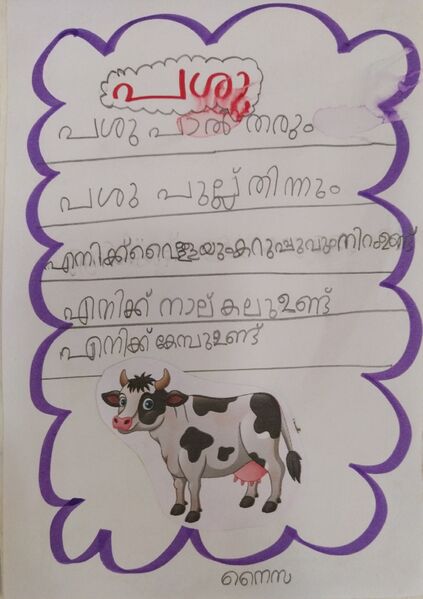 പശു
പശു പാൽ തരും
പശു പുല്ല് തിന്നും
എനിക്ക് വെള്ളയും കറുപ്പും നിറം ഉണ്ട്
എനിക്ക് നാല് കലു ഉണ്ട്
എനിക്ക് കേമ്പു ഉണ്ട്
നൈസ